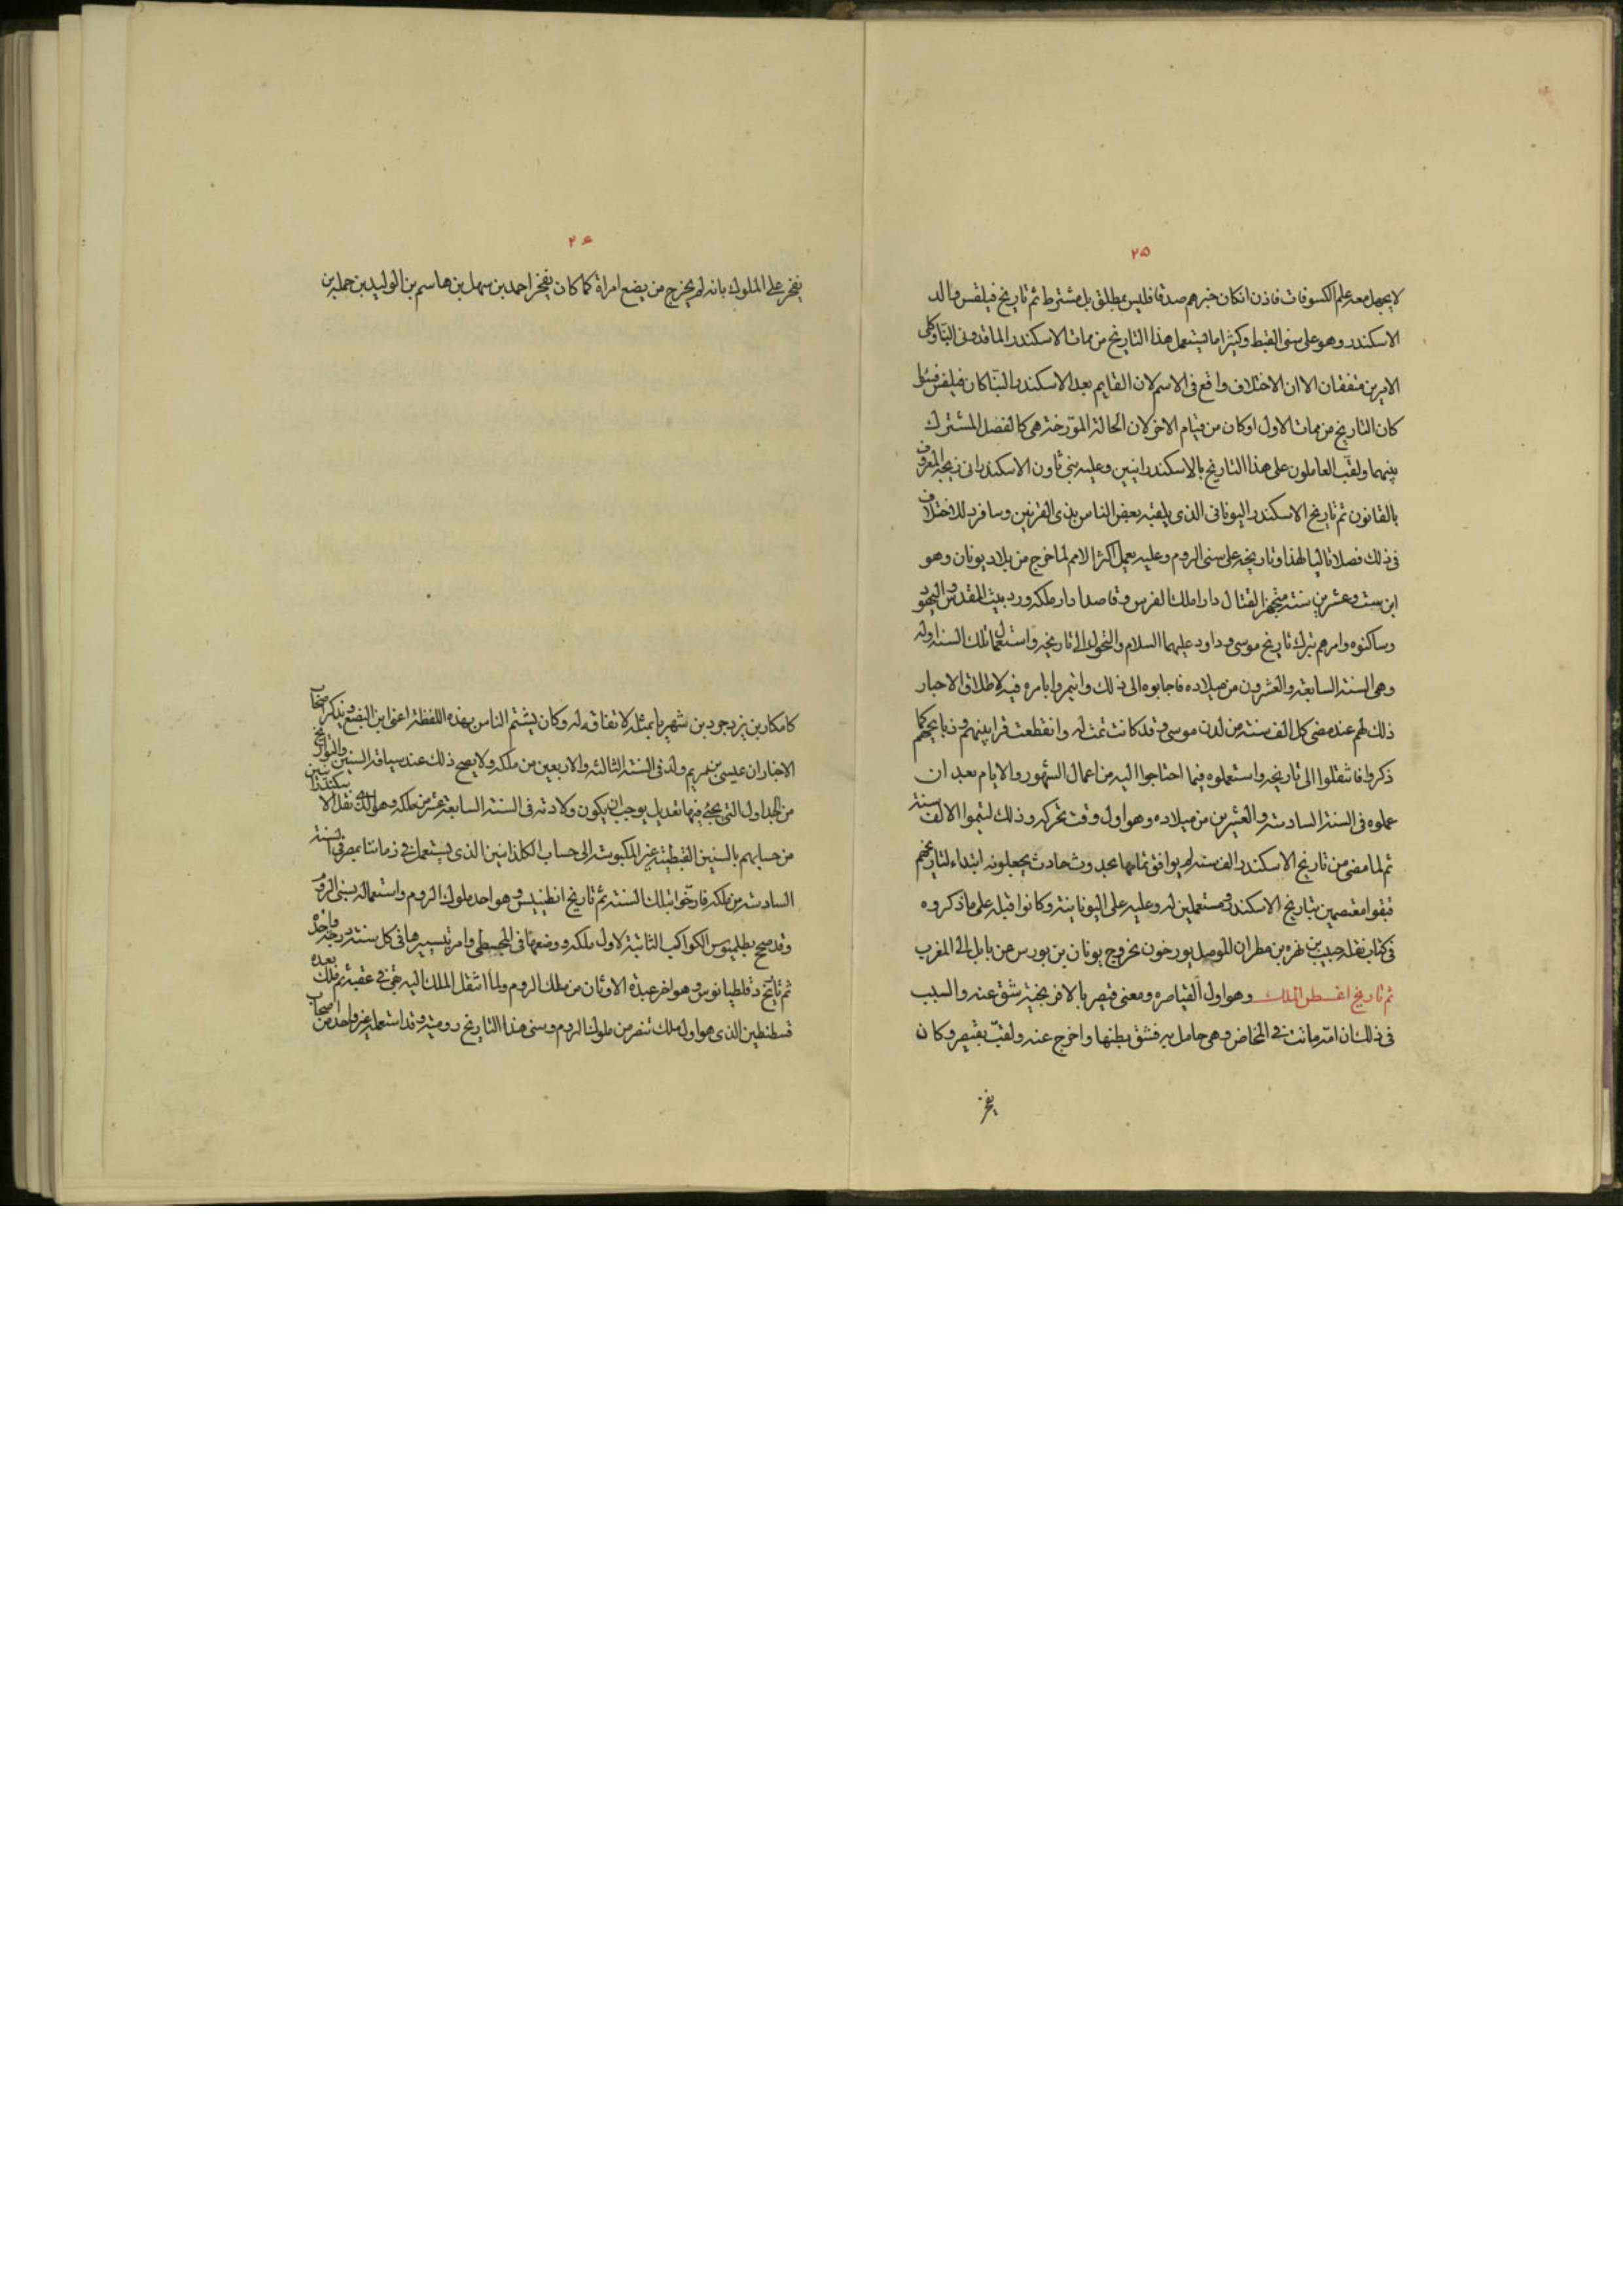 ۲۵
لا يجهل معه علم الكسوفات فاذن انكان خبرهم صدقا فليس بمطلق بل مشترط ثم تاريخ فيلقس والد
الاسكندر وهو على سنى القبط وكثيرا ما يستعمل هذا التاريخ من ممات الاسكندر الماقدونى البنا وكلى
الامرين متفقان الا ان الاختلاف واقع فى الاسم لان القايم بعد الاسكندر البنا كان فيلقس فسئل
كان التاريخ من ممات الاول او كان من قيام الاخر لان الحالة المورّخة هى كالفصل المشترك
بينهما ولقّب العاملون على هذا التاريخ بالاسكندرانيين وعليه بنى ثاون الاسكندرانى زيجه المعروف
بالقانون ثم تاريخ الاسكندر اليونانى الذى يلقبه بعض الناس بذى القرنين وسافرد للاختلاف
فى ذلك فصلا تاليا لهذا وتاريخه على سنى الروم وعليه يعمل اكثر الامم لما خرج من بلاد يونان وهو
ابن ست وعشرين سنة متجهزا لقتال دارا ملك الفرس وقاصدا دار ملكه ورد بيت المقدس واليهود
وساكنوه وامرهم بترك تاريخ موسى وداود عليهما السلام والتحول الى تاريخه واستعمال تلك السنة اوله
وهى السنة السابعة والعشرون من ميلاده فاجابوه الى ذلك وائتمروا بامره فيه لاطلاق الاحبار
ذلك لهم عند مضى كل الف سنة من لدن موسى وقد كانت تمت له وانقطعت قرابينهم وذبايحهم كما
ذكروا فانتقلوا الى تاريخه واستعملوه فيما احتاجوا اليه من اعمال الشهور والايام بعد ان
عملوه فى السنة السادسة والعشرين من ميلاده وهو اول وقت تحركه وذلك ليتموا الالف سنة
ثم لما مضى من تاريخ الاسكندر الف سنة لم يوافق تمامها بحدوث حادث يجعلونه ابتداء لتاريخهم
فبقوا معتصمين بتاريخ الاسكندر ومستعملين له وعليه على اليونانية وكانوا قبله على ما ذكروه
فى كتاب نقله حبيب بن بهريز مطران الموصل يورخون بخروج يونان بن بورس عن بابل الى المغرب
ثم تاريخ اغسطس الملك وهو اول القياصره ومعنى قيصر بالافرنجية شق عنه والسبب
فى ذلك ان امّه ماتت فى المخاض وهى حامل به فشق بطنها واخرج عنه ولقّب بقيصر وكان
يفخر
۲۶
يفخر على الملوك بانه لم يخرج من بضع امراة كما كان يفخر احمد بن سهل بن هاشم بن الوليد بن حمله بن
كامكار بن يزدجرد بن شهريار بمثله لاتفاقه له وكان يشتم الناس بهذه اللفظة اعنى ابن البضع ويذكر اصحاب
الاخبار ان عيسى بن مريم ولد فى السنة الثالثة والاربعين من ملكه ولا يصح ذلك عند سياقة السنين والتواريخ
من الجداول التى يجئ فيها تعديل يوجب ان يكون ولادته فى السنة السابعة عشر من ملكه وهو الذى نقل الاسكندرانيين
من حسابهم بالسنين القبطية غير المكبوسة الى حساب الكلدانيين الذى يستعمل فى زماننا بمصر فى السنة
السادسة من ملكه فارخوا بتلك السنة ثم تاريخ انطنينس وهو احد ملوك الروم واستعماله بسنى الروم
وقد صحح بطلميوس الكواكب الثابتة لاول ملكه ووضعها فى المجسطى وامر بتسييرها فى كل سنة درجة واحدة
ثم تاريخ دقلطيانوس وهو اخر عبدة الاوثان من ملك الروم ولما انتقل الملك اليه بقى فى عقبه ثم ملك بعده
قسطنطين الذى هو اول ملك تنصر من ملوك الروم وسنى هذا التاريخ رومية وقد استعمله غير واحد من اصحاب